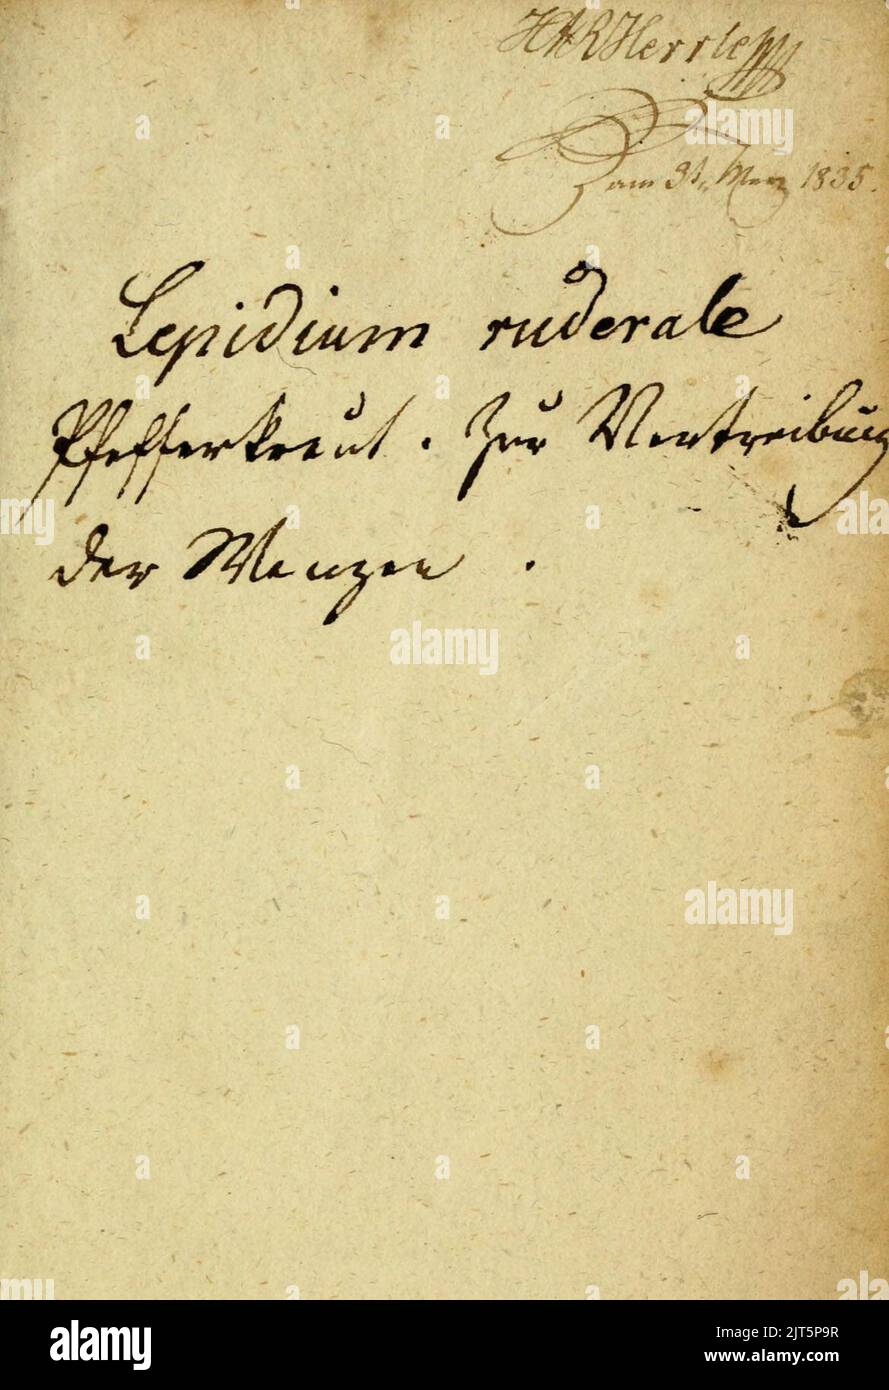 HAR Herrle
am 31. Merz 1835.
Lepidium ruderale
Pfefferkraut. Zur Vertreibung
der Wanzen.
alamy
Image ID: 2JT5P9R
www.alamy.com